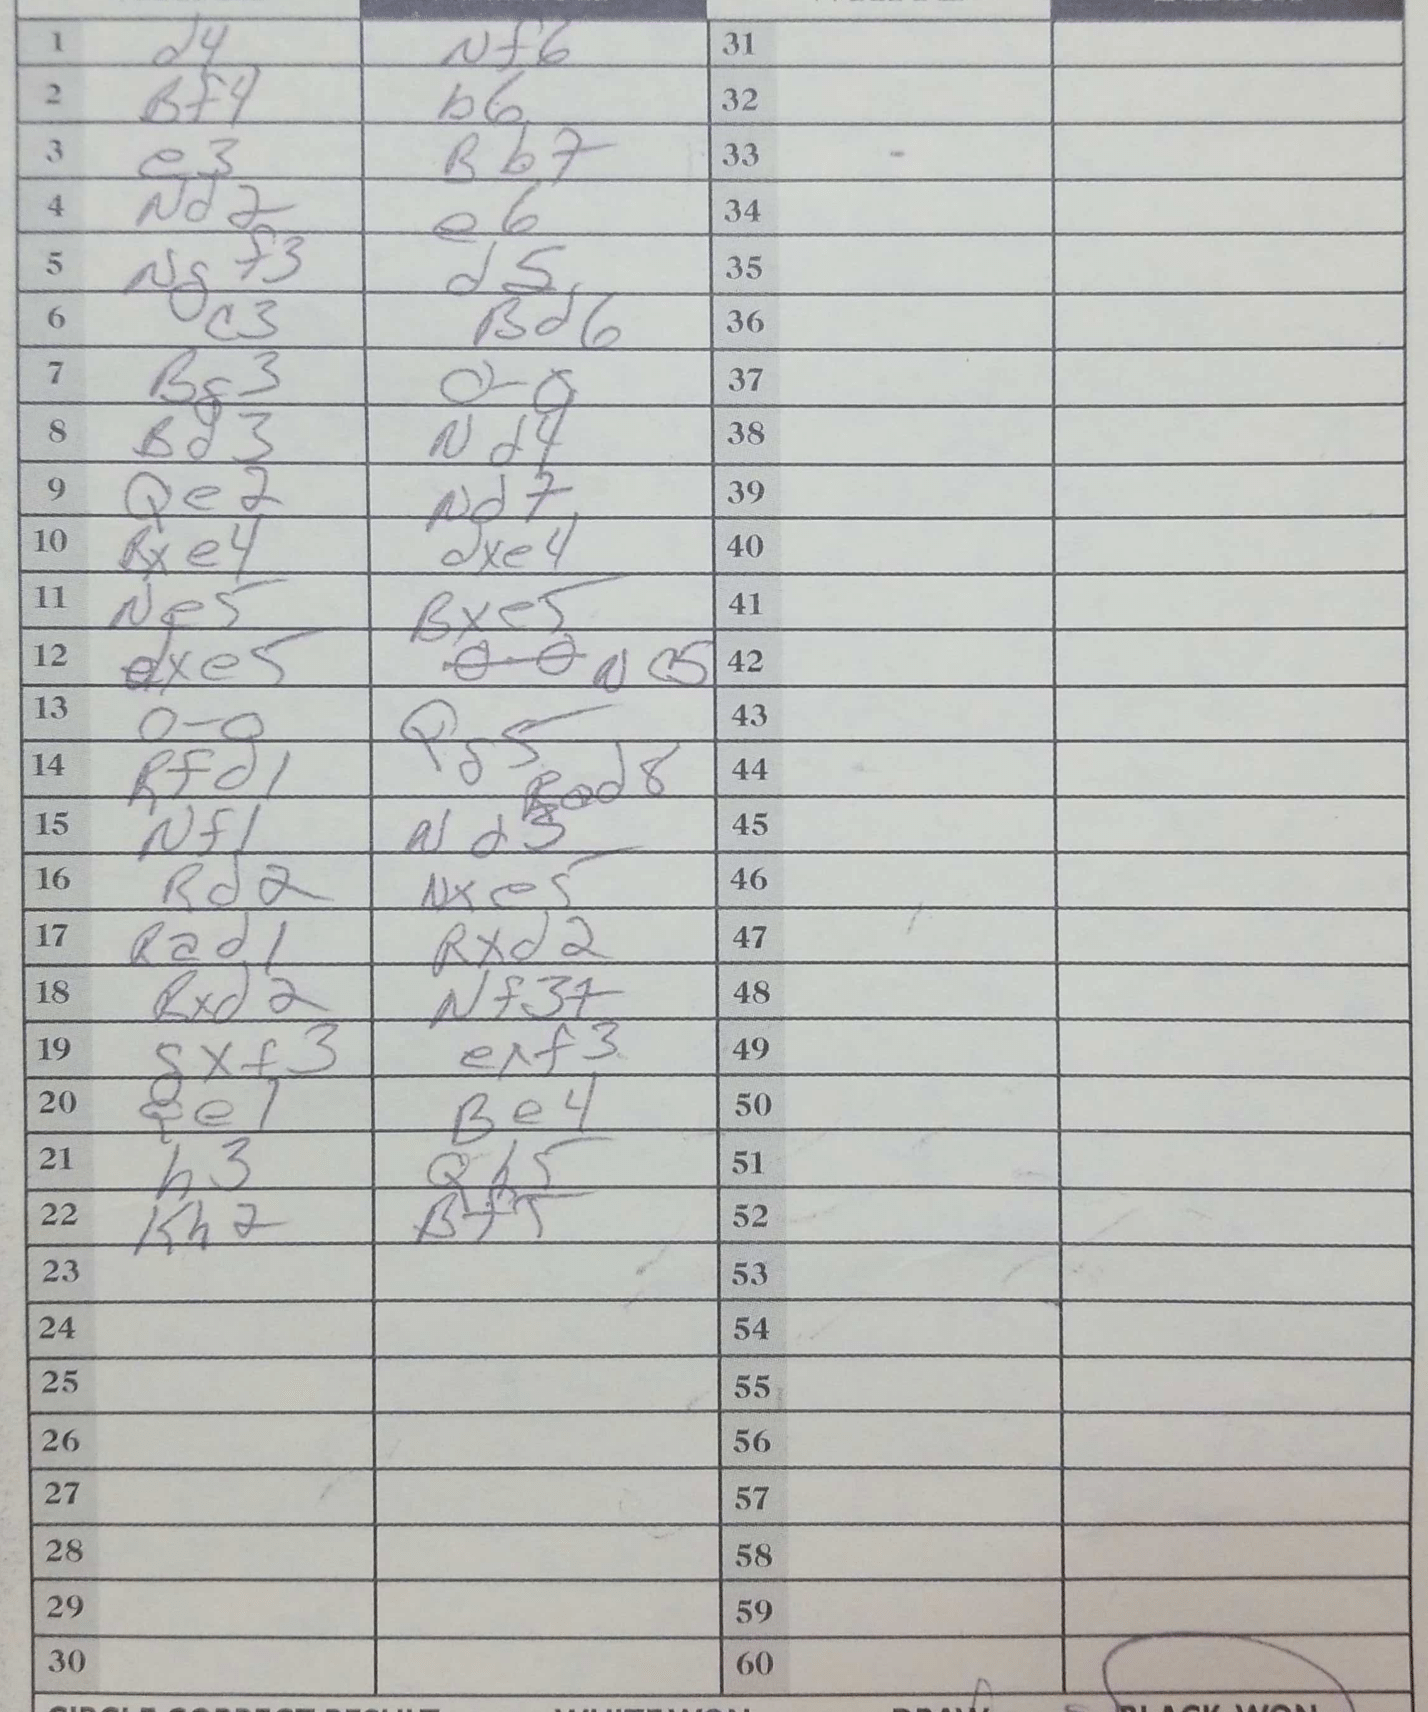 1 d4 Nf6 31
2 Bf4 b6 32
3 e3 Bb7 33
4 Nd2 e6 34
5 Ngf3 d5 35
6 c3 Bd6 36
7 Bg3 0-0 37
8 Bd3 Nd4 38
9 Qe2 Nd7 39
10 Bxe4 dxe4 40
11 Ne5 Bxe5 41
12 dxe5 0-0 Nc5 42
13 0-0 Qg5 43
14 Rfd1 Rad8 44
15 Nf1 Nd3 45
16 Rd2 Nxe5 46
17 Rad1 Rxd2 47
18 Rxd2 Nf3+ 48
19 gxf3 exf3 49
20 Qe1 Be4 50
21 h3 Qh5 51
22 Kh2 Bf5 52
23 53
24 54
25 55
26 56
27 57
28 58
29 59
30 60
CIRCLE CORRECT RESULT WHITE WON DRAW BLACK WON